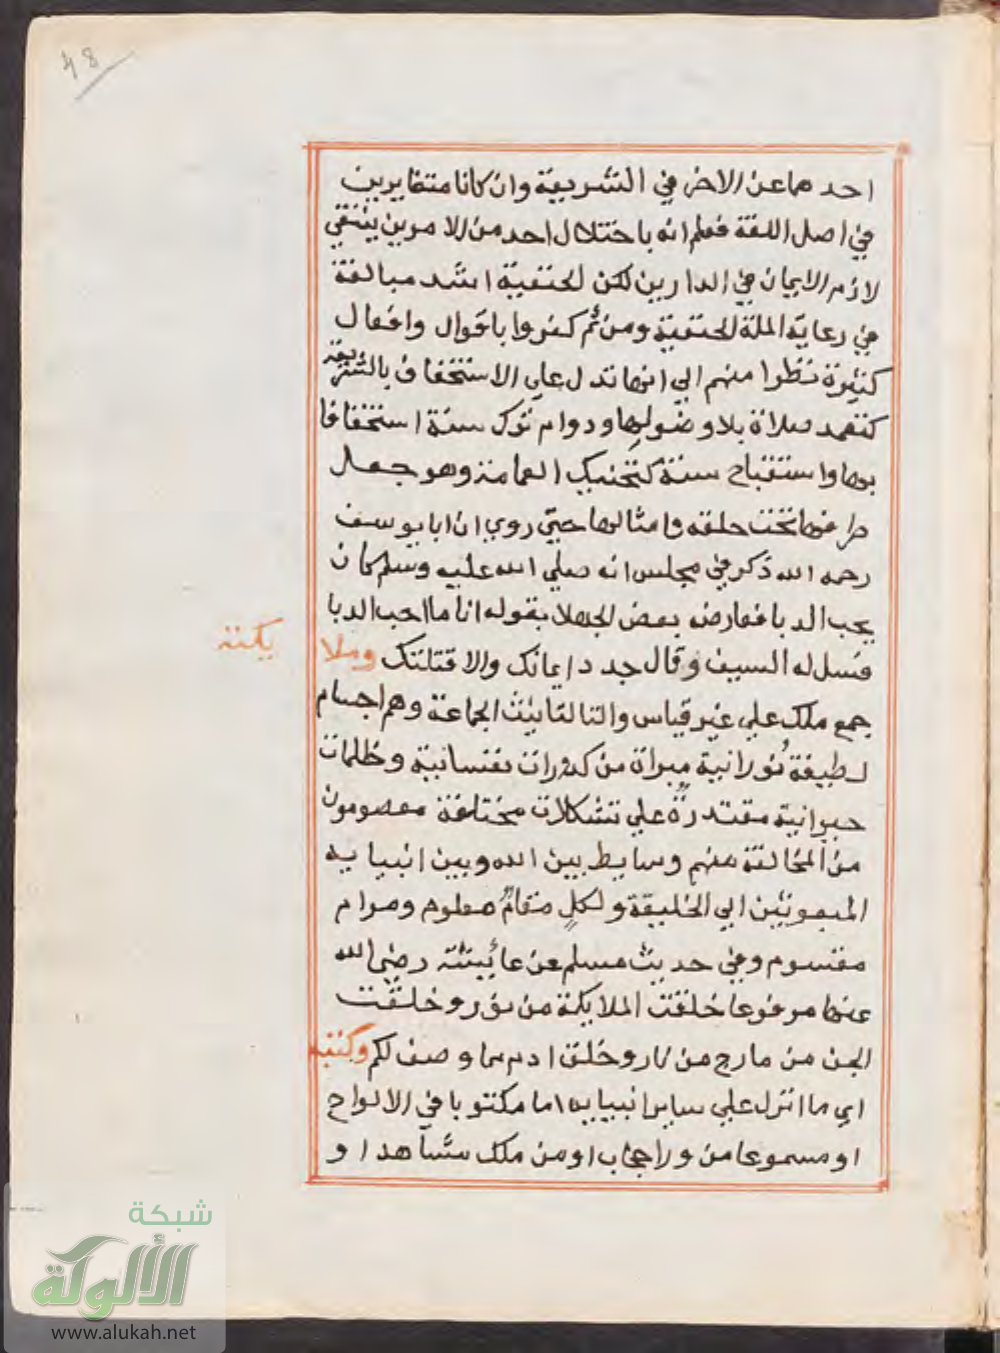 48
احدهما عن الاخر في الشريعة وان كانا متغايرين
في اصل اللغة فعلم انه باختلال احد من الامرين ينتفي
لازم الايمان في الدارين لكن الحنفية اشد مبالغة
في رعاية الملة الحنفية ومن ثم كفروا باقوال وافعال
كثيرة نظرا منهم الي انها تدل علي الاستخفاف بالشريعة
كتعمد صلاة بلا وضو لها ودوام ترك سنة استخفافا
بها واستقباح سنة كتحنيك العمامة وهو جعل
طرفها تحت حلقه وامثالها حتي روي ان ابا يوسف
رحمه الله ذكر في مجلس انه صلي الله عليه وسلم كان
يحب الدبا فعارض بعض الجهلا بقوله انا ما احب الدبا
فسل له السيف وقال جدد ايمانك والا قتلتك وملا
يكته
جمع ملك علي غير قياس والتا لتانيث الجماعة وهم اجسام
لطيفة نورانية مبراة من كدورات نفسانية وظلمات
حيوانية مقتدرة علي تشكلات مختلفة معصومون
من المخالفة منهم وسايط بين الله وبين انبيايه
المبعوثين الي الخليقة ولكل مقام معلوم ومرام
مقسوم وفي حديث مسلم عن عائيشة رضي الله
عنها مرفوعا خلقت الملايكة من نور وخلقت
الجن من مارج من نار وخلق ادم مما وصف لكم وكتبه
اي ما انزل علي ساير انبيايه اما مكتوبا في الالواح
او مسموعا من ورا حجاب او من ملك مشاهد او
شبكة
الألوكة
www.alukah.net